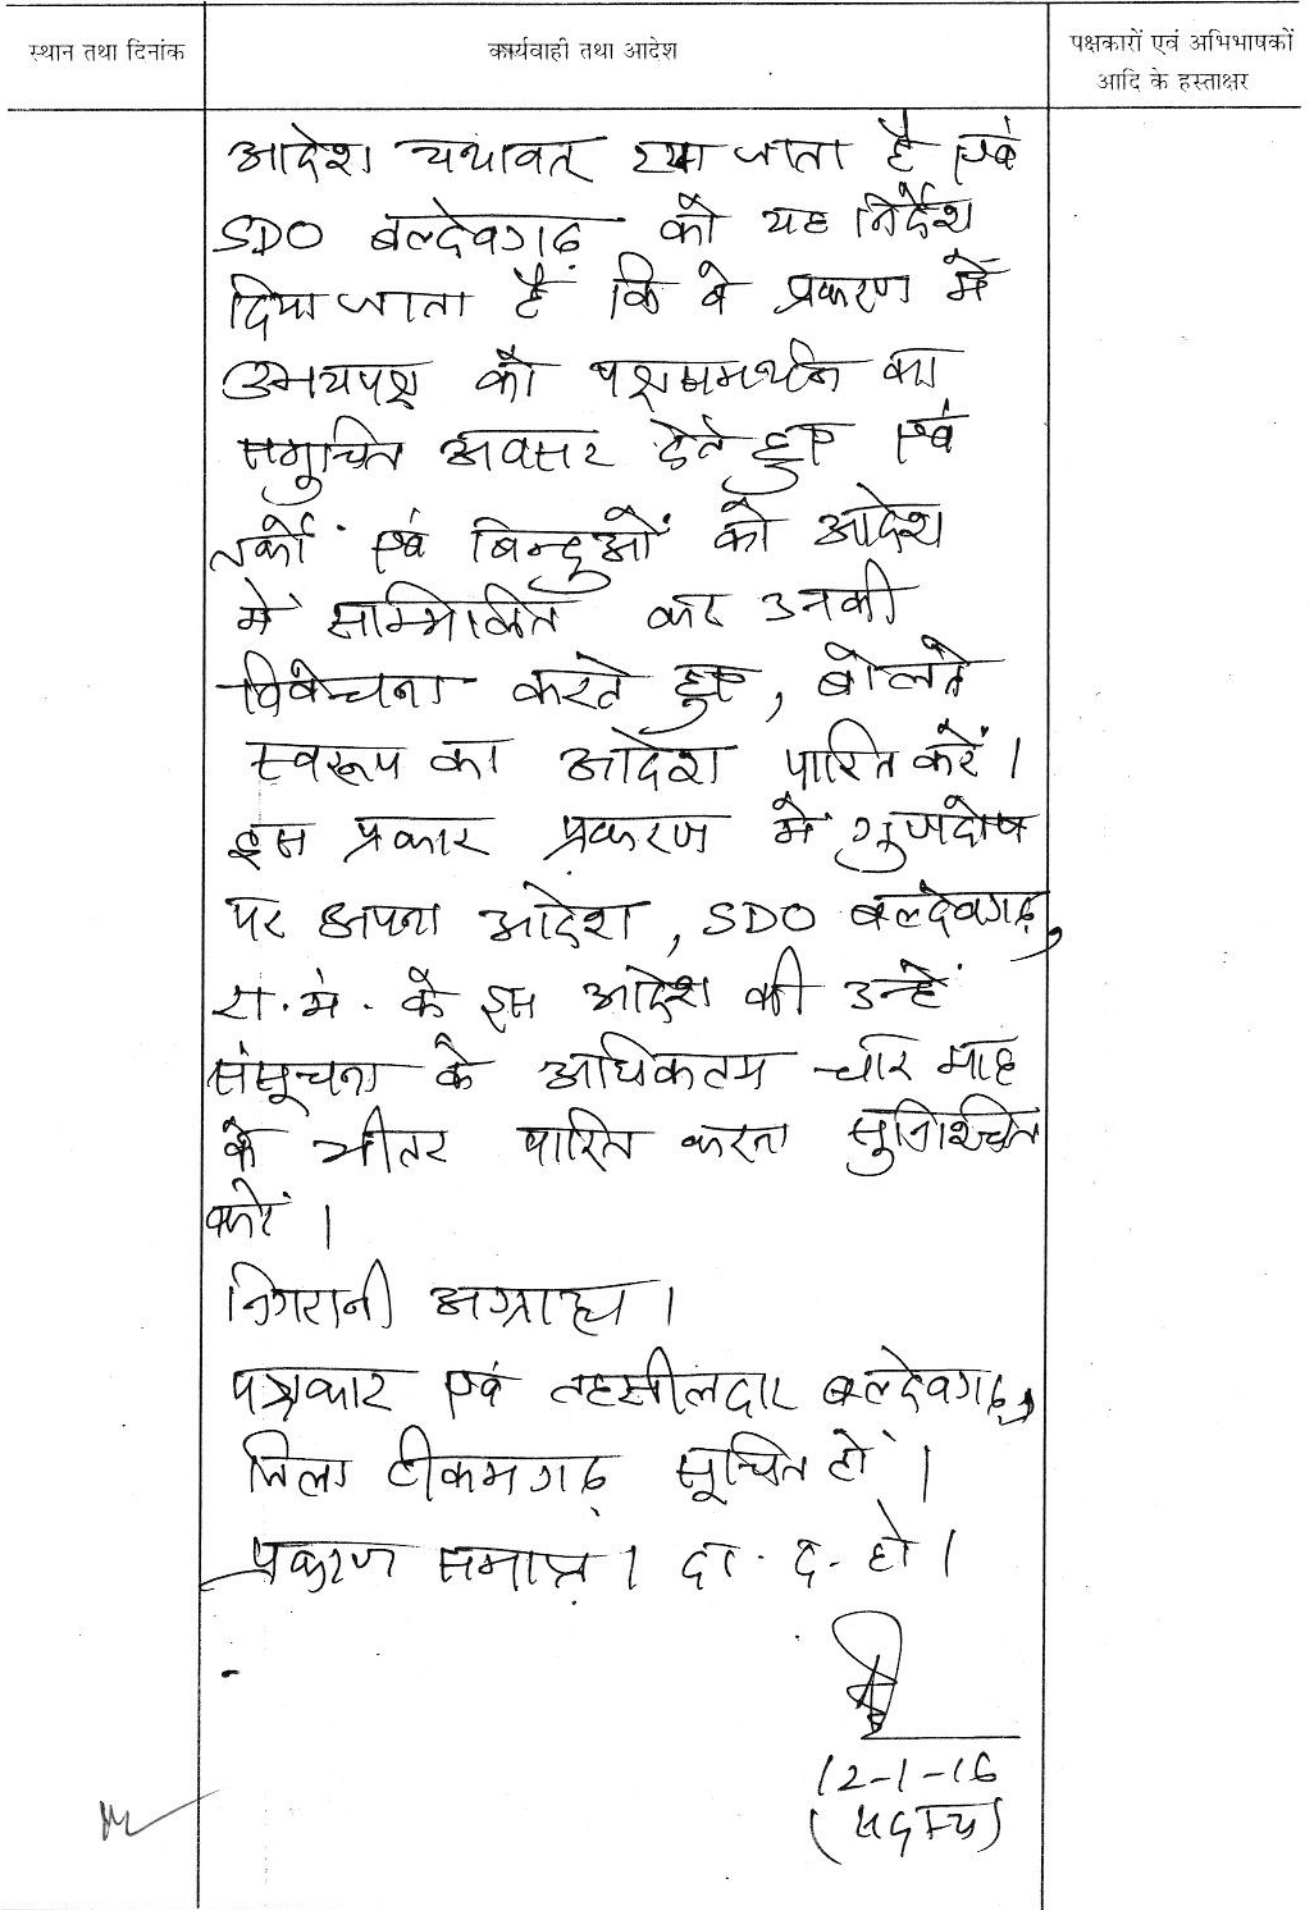 स्थान तथा दिनांक
कार्यवाही तथा आदेश
पक्षकारों एवं अभिभाषकों
आदि के हस्ताक्षर
आदेश यथावत् रखा जाता है एवं
SDO बल्देवगढ़ को यह निर्देश
दिया जाता है कि वे प्रकरण में
उभयपक्ष को पक्षसमर्थन का
समुचित अवसर देते हुए एवं
तर्कों एवं बिन्दुओं को आदेश
में सम्मिलित कर उनकी
विवेचना करते हुए, बोलते
स्वरूप का आदेश पारित करें।
इस प्रकार प्रकरण में गुणदोष
पर अपना आदेश, SDO बल्देवगढ़,
रा.मं. के इस आदेश की उन्हें
संसूचना के अधिकतम चार माह
के भीतर पारित करना सुनिश्चित
करें।
निगरानी अग्राह्य।
पक्षकार एवं तहसीलदार बल्देवगढ़,
जिला टीकमगढ़ सूचित हों।
प्रकरण समाप्त। दा. द. हो।
12-1-16
(सदस्य)